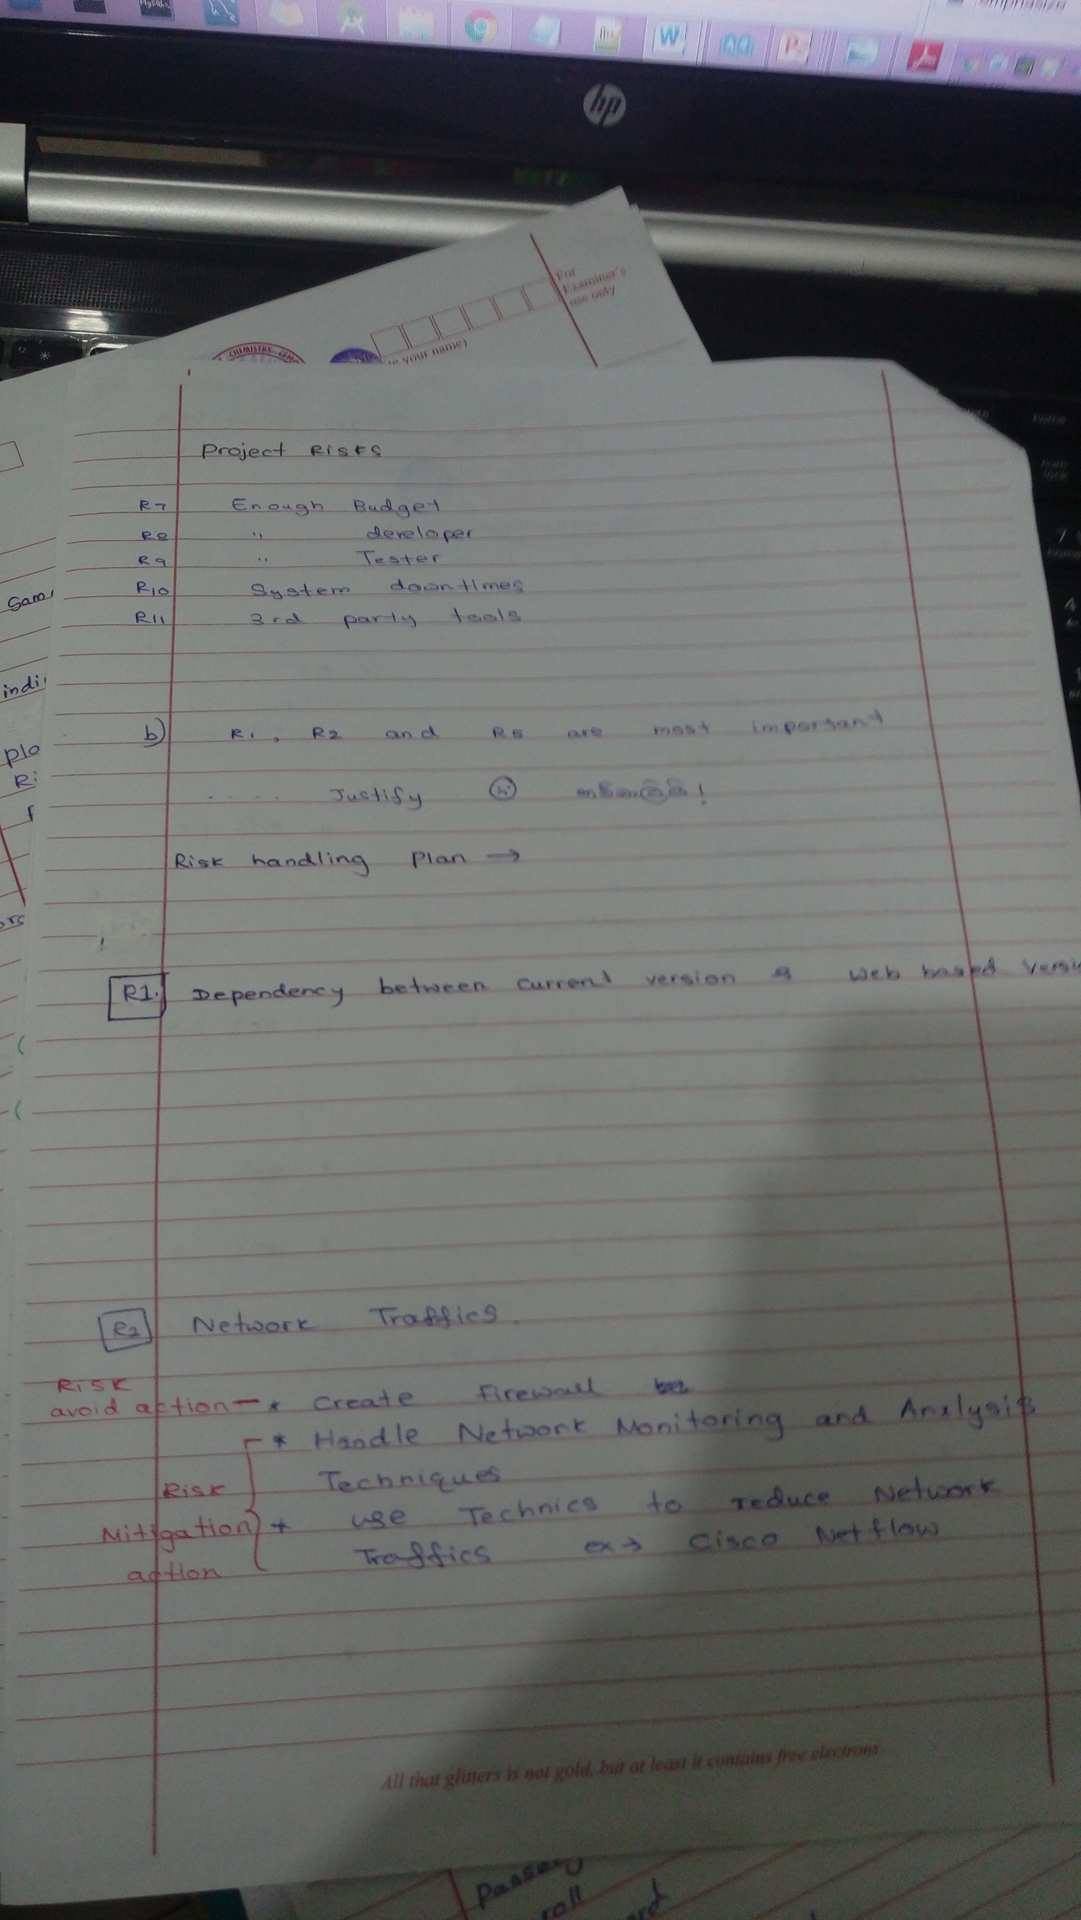 emphasize
hp
For
Examiner's
use only
CHEMISTRY
your name)
Project Risks
R7 Enough Budget
R8 " developer
R9 " Tester
R10 System downtimes
R11 3rd party tools
b) R1, R2 and R5 are most important
..... Justify
Risk handling Plan →
R1. Dependency between current version & web based versi
R2 Network Traffics.
Risk
avoid action - * Create Firewall
* Handle Network Monitoring and Analysis
Techniques
Risk
Mitigation * use Technics to reduce Network
action Traffics ex → Cisco Netflow
All that glitters is not gold, but at least it contains free electrons
Sam
indi
plo
Ri
ors
roll